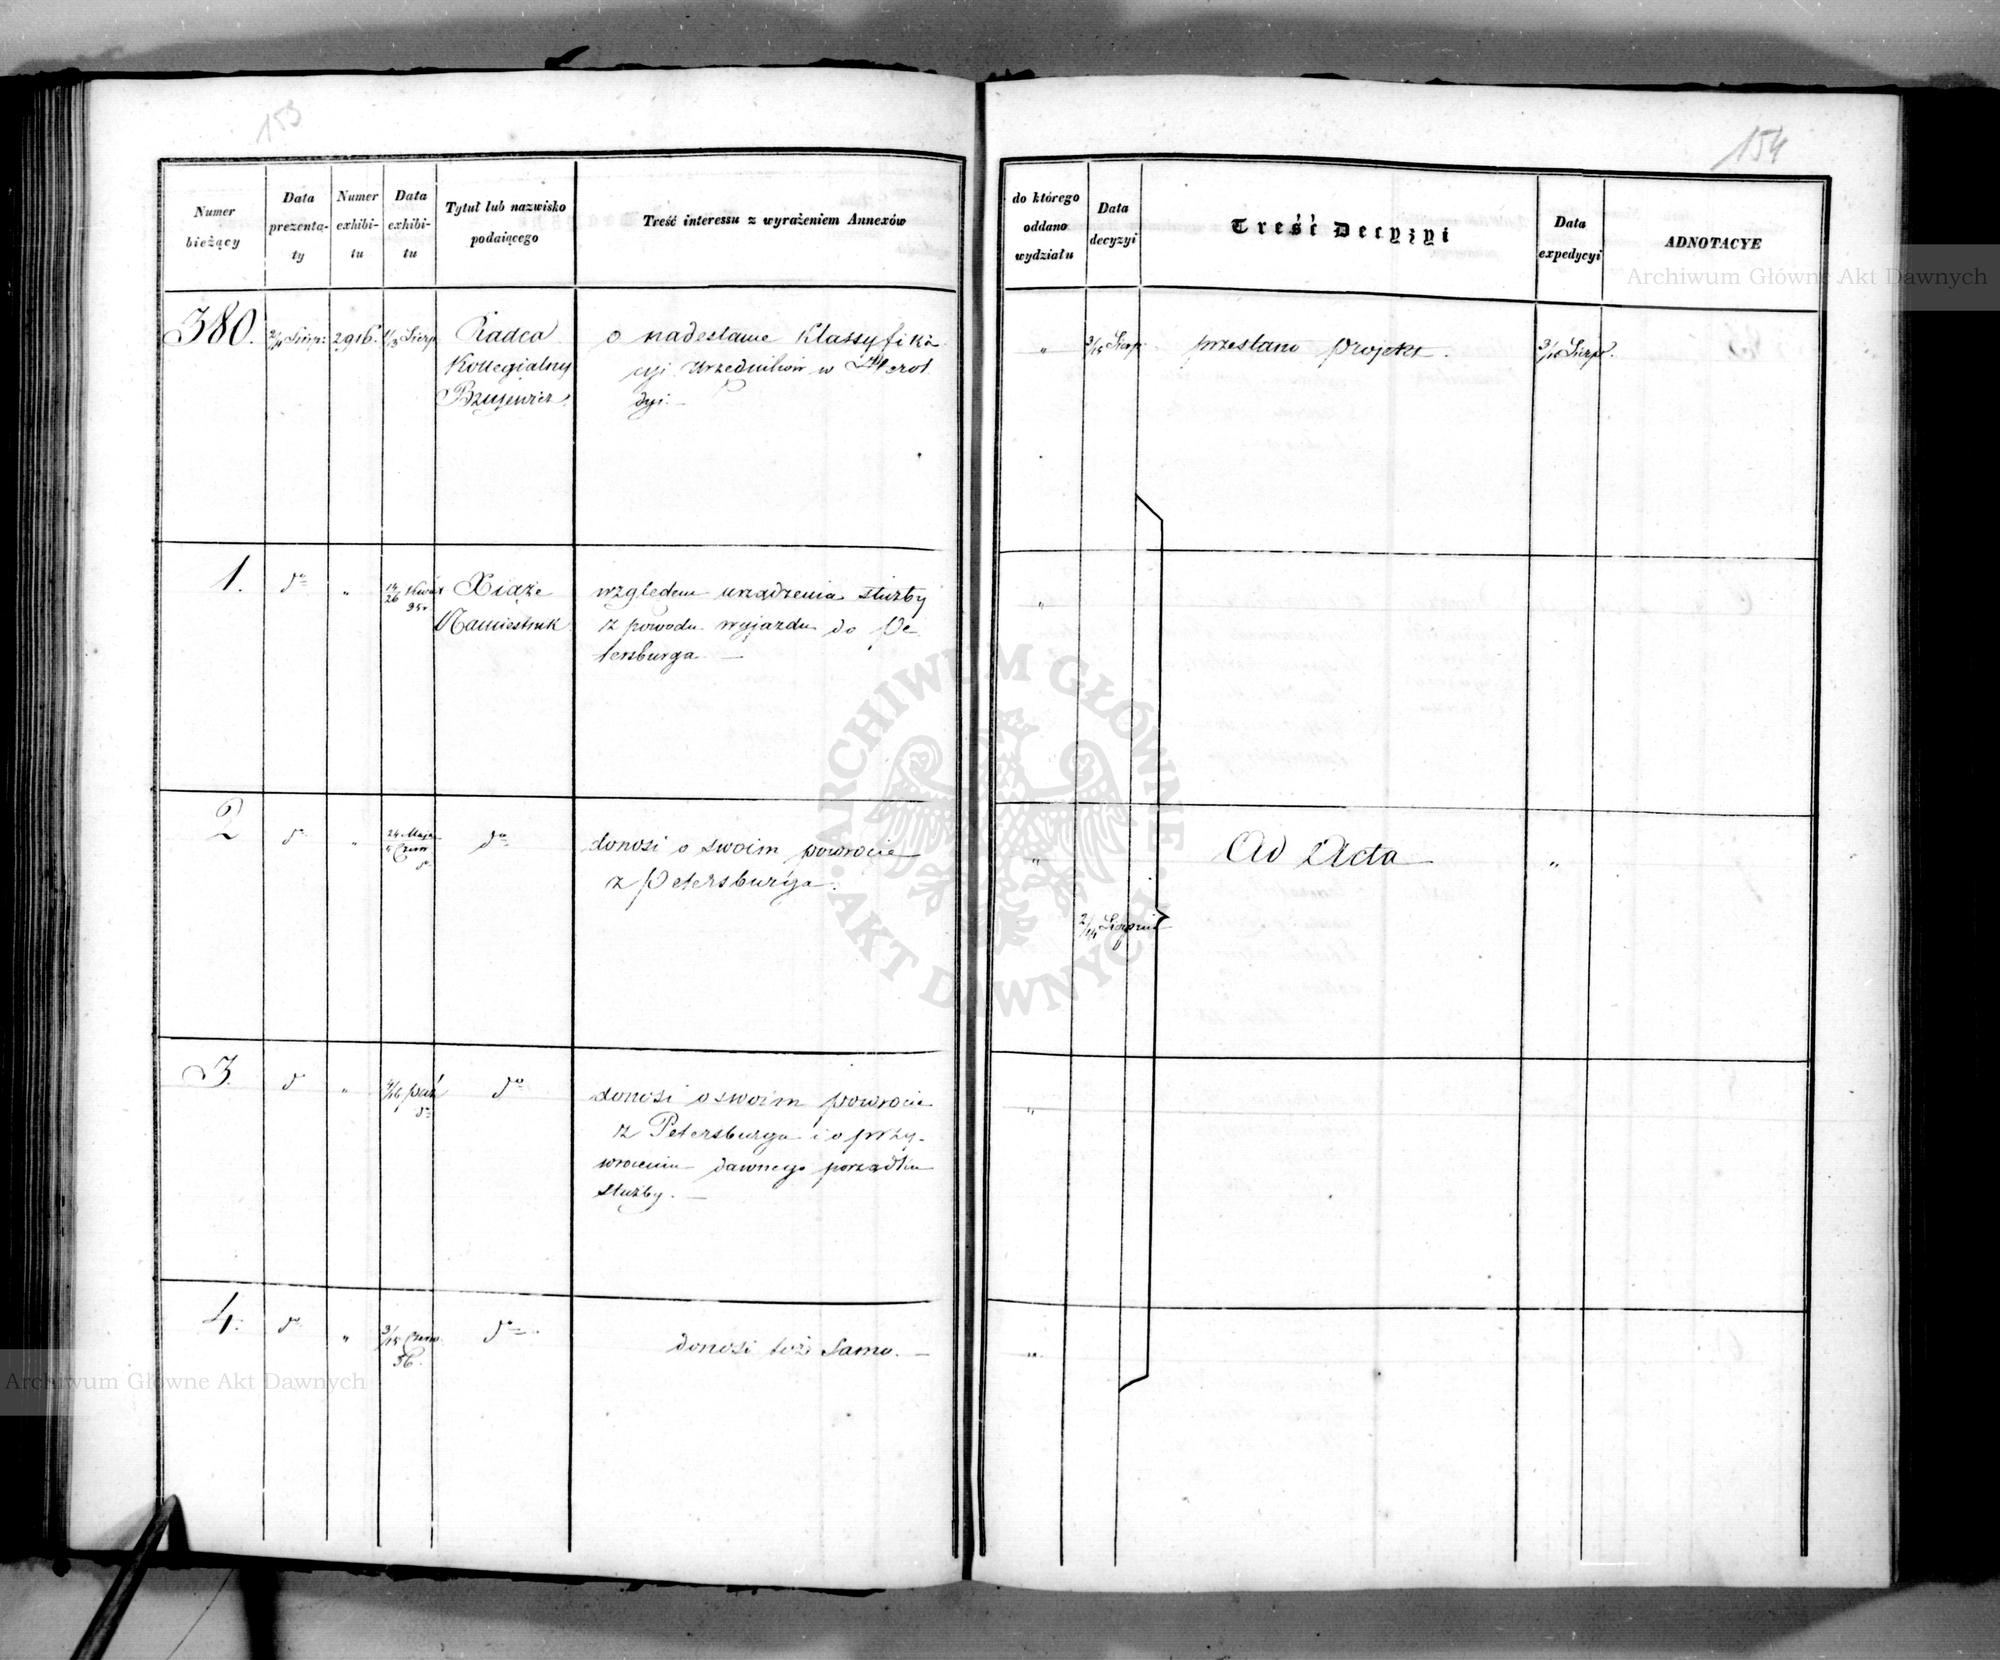 153
154
Numer bieżący
Data prezenta-ty
Numer exhibi-tu
Data exhibi-tu
Tytuł lub nazwisko podaiącego
Treść interessu z wyrażeniem Annexów
do którego oddano wydziału
Data decyzyi
Treść Decyzyi
Data expedycyi
ADNOTACYE
380. 2/14 Sierp: 2916. 1/13 Sierp
Radca
Kollegialny
o nadesłanie Klassyfika
cyi Urzędników w Herol
dyi. —
„ 3/15 Sierp. przesłano projekt. 3/15 Sierp.
1. do „ 14/26 Kwiet 35r
Xiąże
Namiestnik
względem urządzenia służby
z powodu wyjazdu do Pe
tersburga —
„
2 do „ 24 Maja 5 Czerw do
donosi o swoim powrocie
z Petersburga.
„ 2/14 Sierpnia Ad Acta „
3. do „ 4/16 paź do do
donosi o swoim powrocie
z Petersburga i o przy-
wróceniu dawnego porządku
służby. —
„
4. do „ 3/15 Czerw. 36. do
donosi toż Samo. —
„
Archiwum Główne Akt Dawnych
Archiwum Główne Akt Dawnych
ARCHIWUM GŁÓWNE · AKT DAWNYCH ·